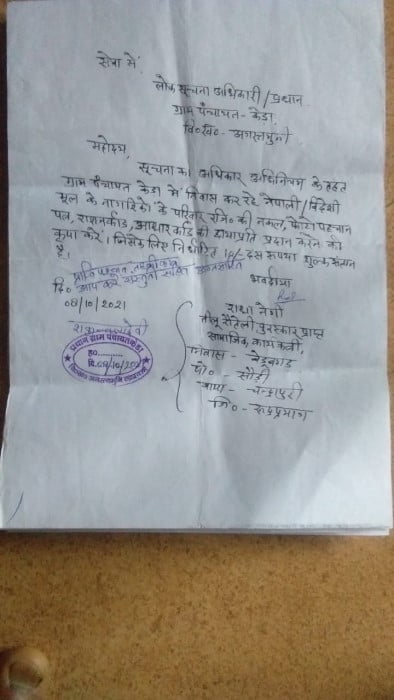 सेवा में
लोक सूचना अधिकारी/प्रधान
ग्राम पंचायत- केडा,
वि०ख०- अगस्तमुनी
महोदय,
सूचना का अधिकार अधिनियम के तहत
ग्राम पंचायत केडा में निवास कर रहे नेपाली/विदेशी
मूल के नागरिकों के परिवार रजि० की नकल, फोटो पहचान
पत्र, राशनकार्ड, आधार कार्ड की छायाप्रति प्रदान करने की
कृपा करें। जिसके लिए निर्धारित 10/- दस रूपया शुल्क संलग्न
है।
दि०
08/10/2021
भवदीया
राधा नेगी
तीलू रौतेली पुरस्कार प्राप्त
सामाजिक कार्यकर्ती,
निवास -
पो० - सौड़ी
वाया - चन्द्रापुरी
जि० - रूद्रप्रयाग
प्रधान ग्राम पंचायत केडा
ह०
दि. 08/10/202